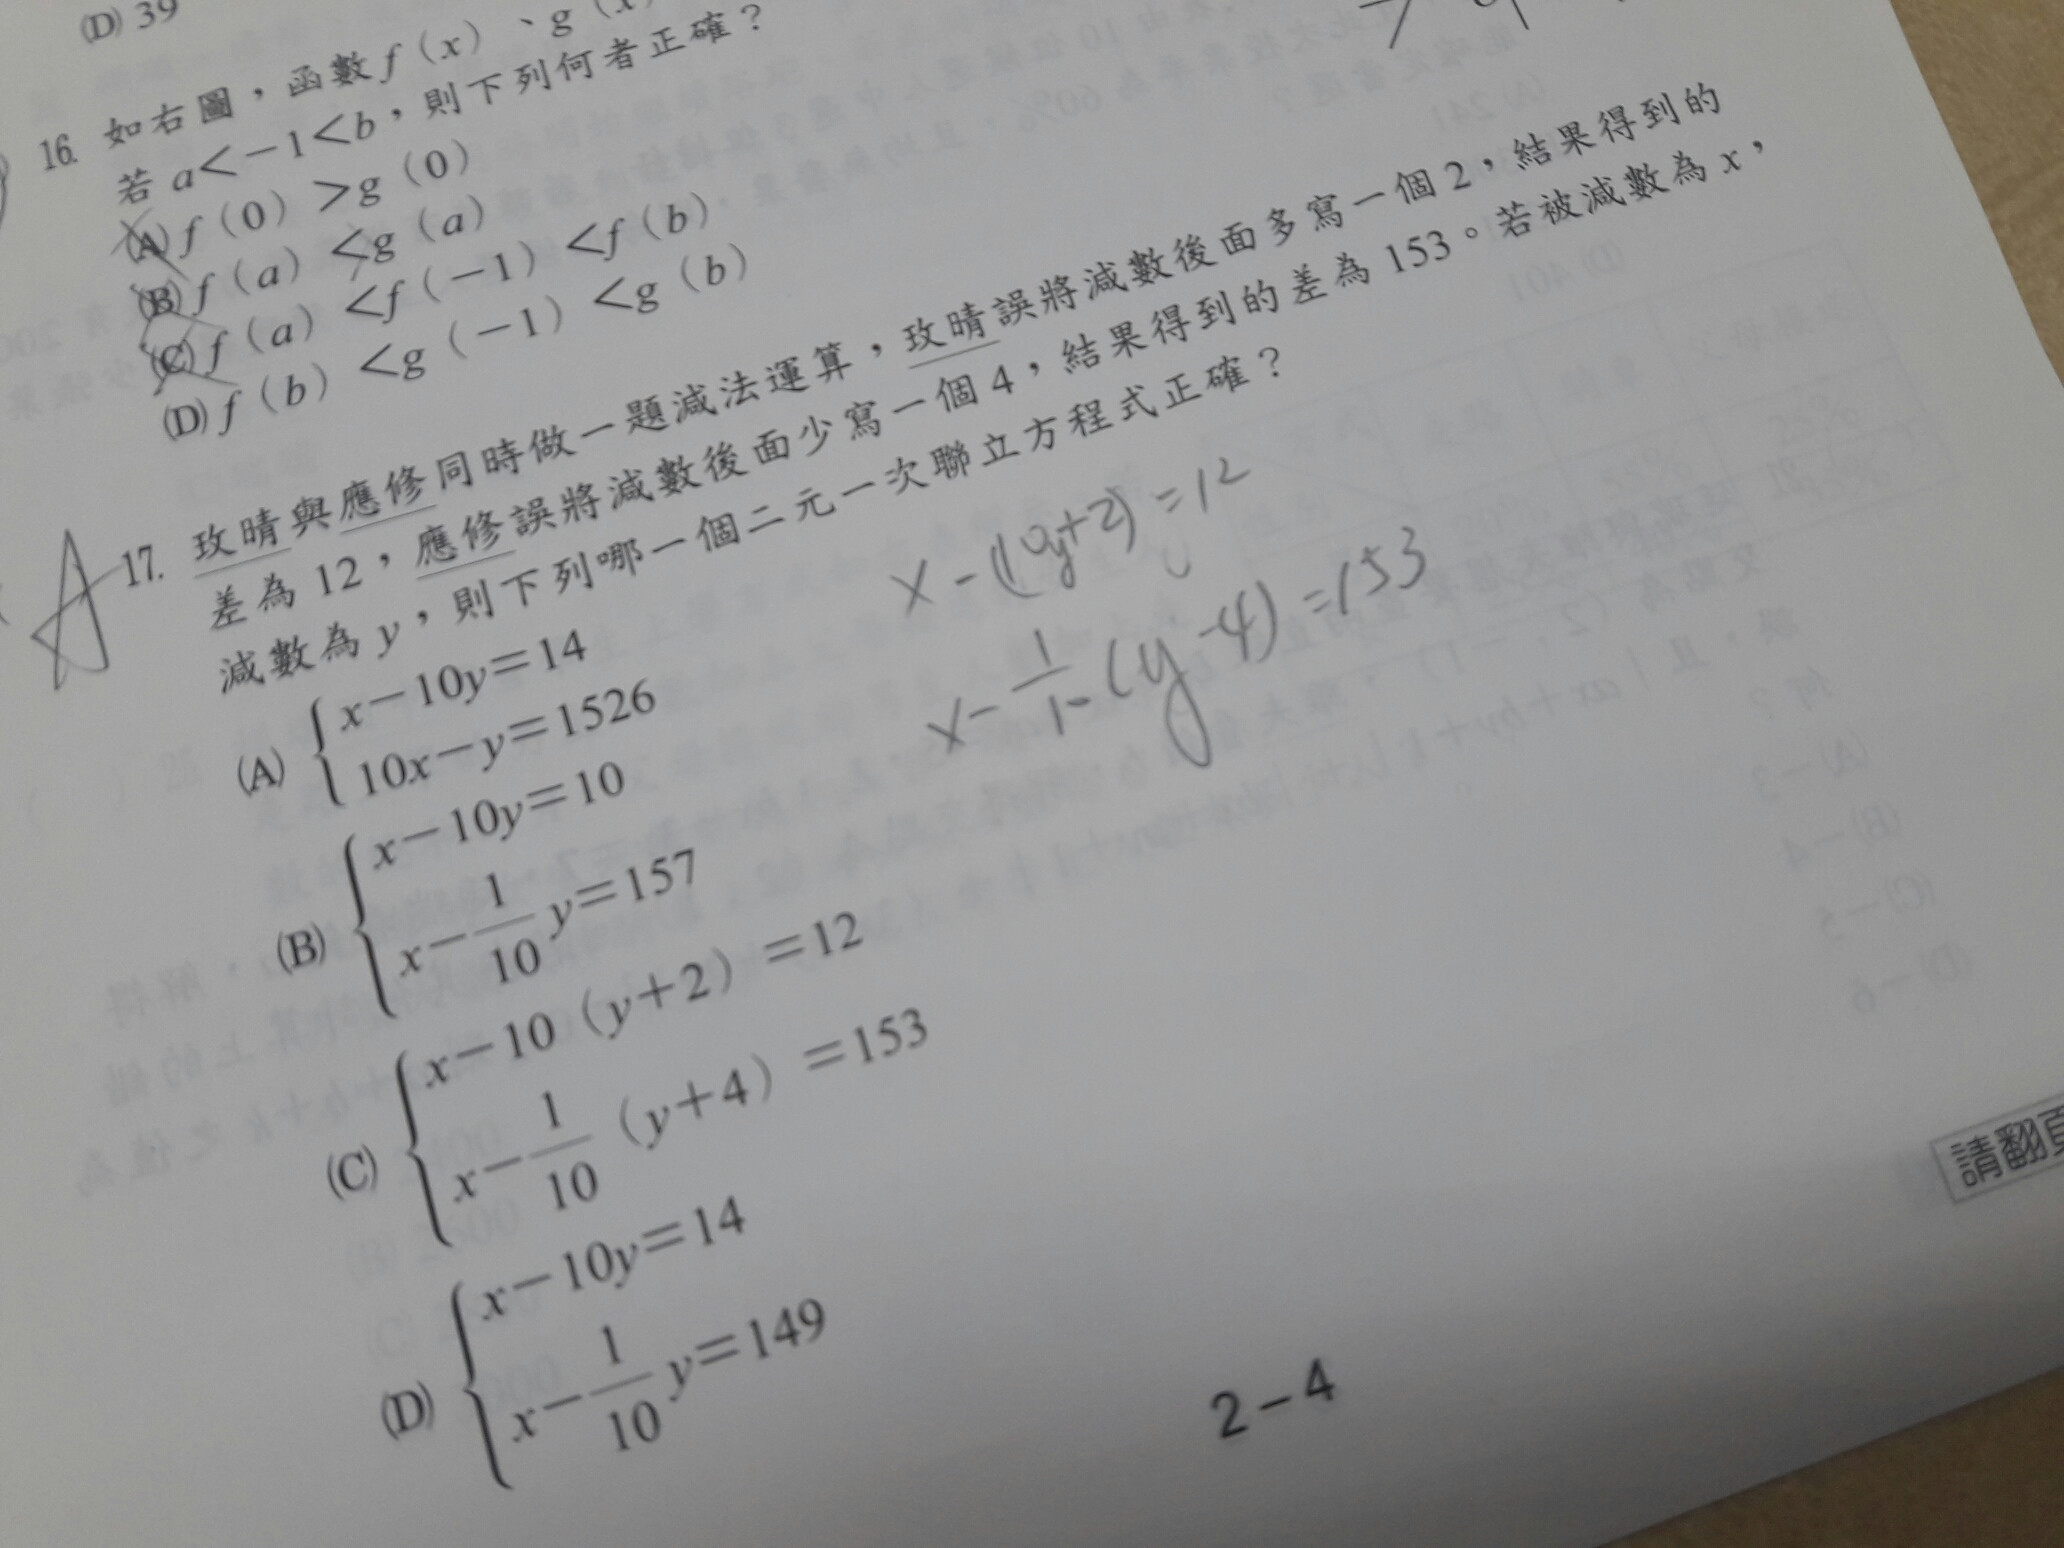 (D) 39
16. 如右圖，函數 f（x）、g（x
若 a＜－1＜b，則下列何者正確？
(A) f（0）＞g（0）
(B) f（a）＜g（a）
(C) f（a）＜f（－1）＜f（b）
(D) f（b）＜g（－1）＜g（b）
17. 玫晴與應修同時做一題減法運算，玫晴誤將減數後面多寫一個 2，結果得到的
差為 12，應修誤將減數後面少寫一個 4，結果得到的差為 153。若被減數為 x，
減數為 y，則下列哪一個二元一次聯立方程式正確？
x－(10y+2)=12
x－1/10(y－4)=153
(A) { x－10y＝14
10x－y＝1526
(B) { x－10y＝10
x－1/10 y＝157
(C) { x－10（y＋2）＝12
x－1/10（y＋4）＝153
(D) { x－10y＝14
x－1/10 y＝149
請翻頁
2－4